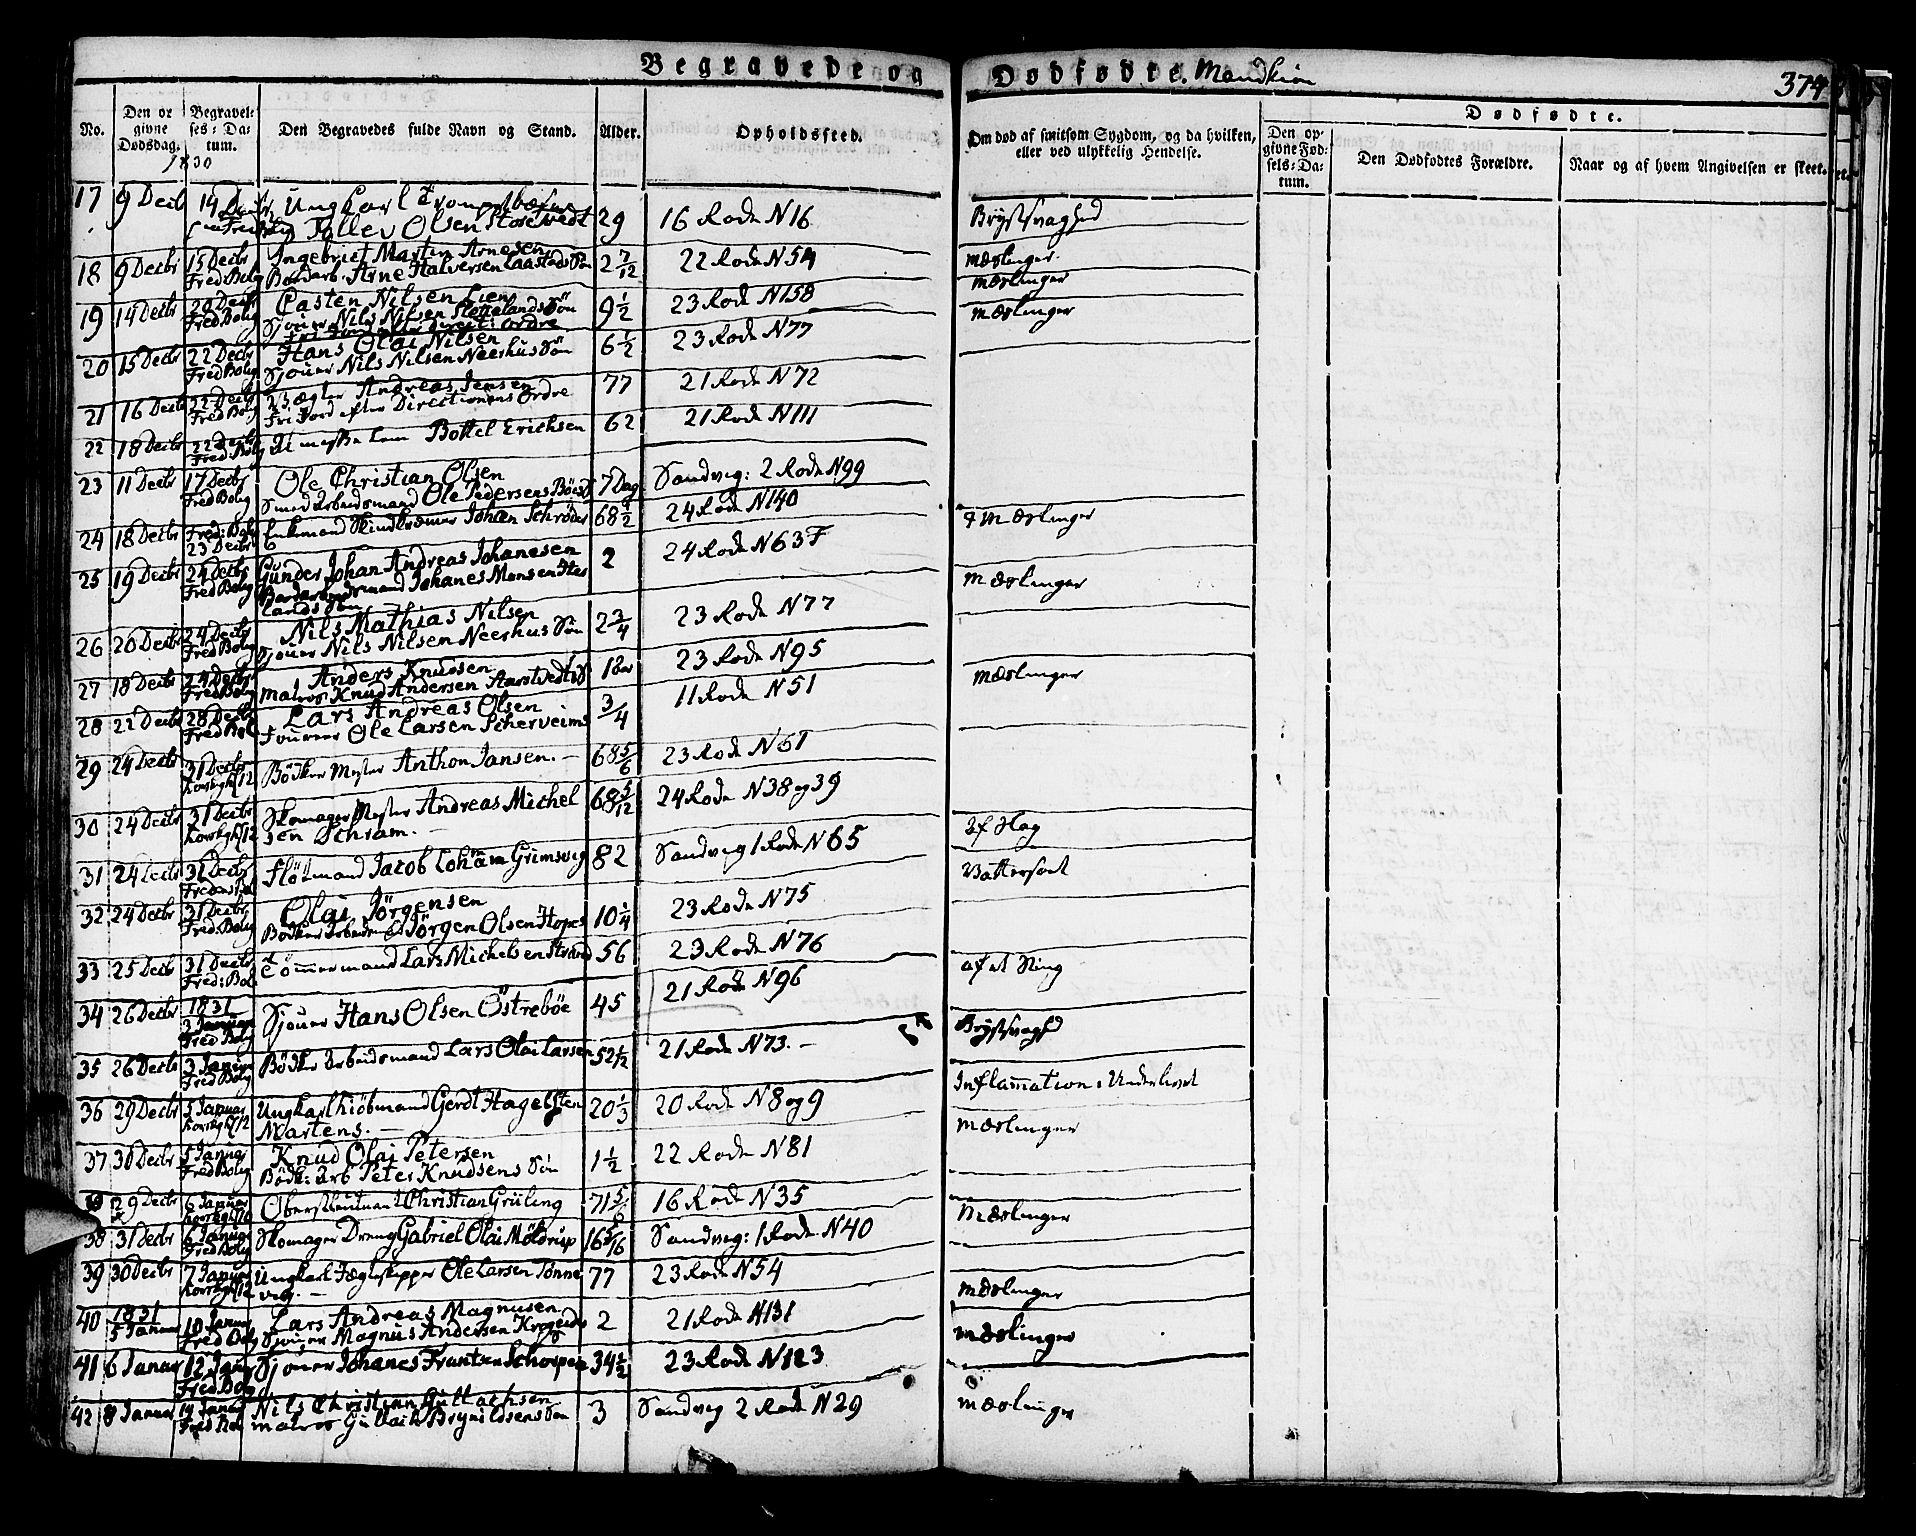 Begravede og Dødfødte. Mandkiøn
374
No.
Den opgivne Dødsdag.
Begravelses-Datum.
Den Begravedes fulde Navn og Stand.
Alder.
Opholdssted.
Om død af smitsom Sygdom, og da hvilken, eller ved ulykkelig Hendelse.
Dødfødte.
Den opgivne Fødsels-Datum.
Den Dødfødtes Forældre.
Naar og af hvem Angivelsen er skeet.
1830
17 9 Decbr 14 Decbr Ungkarl
Tollev Olsen Storetvedt 29 16 Rode N16 Brystsvaghed
18 9 Decbr 15 Decbr Fred Bolig Ingebrict Martin Arnesen
Bordarb. Arne Halversen Laastads Søn 2 7/12 22 Rode N54 mæslinger.
mæslinger
19 14 Decbr 20 Decbr Fred Bolig Casten Nilsen Lien
Sjouer Nils Nilsen Slettelands Søn 9 1/2 23 Rode N158 mæslinger
20 15 Decbr 22 Decbr Fred Bolig Hans Olai Nilsen
Sjouer Nils Nilsen Neerhus Søn 6 1/2 23 Rode N77
21 16 Decbr 22 Decbr Fred Bolig Vægter Andreas Jensen
Fri Jord efter Directionens Ordre 77 21 Rode N72
22 18 Decbr 22 Decbr Fred. Bolig Bottel Erichsen 62 21 Rode N111
23 11 Decbr 17 Decbr Fred Bolig Ole Christian Olsen
Smed Arbeidsmand Ole Pedersens 7 Dag Sandvig: 2 Rode N99
24 18 Decbr Fred: Bolig 23 Decbr Enkemand Johan Schrøder 68 1/2 24 Rode N140 mæslinger
25 19 Decbr 24 Decbr Fred Bolig Gunder Johan Andreas Johanesen
Bordarbeidsmand Johanes Monsen
lands Søn 2 24 Rode N63F mæslinger
26 20 Decbr 24 Decbr Fred Bolig Nils Mathias Nilsen
Sjouer Nils Nilsen Neerhus Søn 2 3/4 23 Rode N77
27 18 Decbr 24 Decbr Fred Bolig Anders Knudsen
Matros Knud Andersen Aarstvedts S 1 Aar 23 Rode N95 mæslinger
28 22 Decbr 28 Decbr Fred Bol. Lars Andreas Olsen
Ole Larsen Scherveims 3/4 11 Rode N51
29 24 Decbr 31 Decbr Bødker Mester Anthon Jansen. 68 5/6 23 Rode N61
30 24 Decbr 31 Decbr Skomager Mester Andreas Michel
sen Schram. 68 5/12 24 Rode N38 og 39 Af Slag
31 24 Decbr 31 Decbr Fløtmand Jacob Grimsvig 82 Sandvig 1 Rode N65 Vattersoet
32 24 Decbr 31 Decbr Fred. Bolig Olai Jørgensen
Bødker Arbeidsmd Jørgen Olsen Hopes 10 1/4 23 Rode N75
33 25 Decbr 31 Decbr Fred: Bol. Tømmermand Lars Michelsen Strand 56 23 Rode N76 af et Sting
34 26 Decbr 1831 3 Januar Fred Bolig Sjouer Hans Olsen Østrebøe 45 21 Rode N96 Brystsvaghd
35 26 Decbr 3 Januar Fred Bolig Bødker Arbeidsmand Lars Olai Larsen 52 1/2 21 Rode N73. Inflammation i Underlivet
36 29 Decbr 5 Januar Ungkarl kiøbmand Gerdt Hagelsten
Martens. 20 1/3 20 Rode N8 og 9 mæslinger
37 30 Decbr 5 Januar Fred Bolig Knud Olai Petersen
Bødk: Arb Peter Knudsens Søn 1 1/2 22 Rode N81
29 Decbr 6 Januar Oberstleutnant Christian Grüling 71 5/6 16 Rode N35 Mæslinger
38 31 Decbr 6 Januar Fred Bolig Skomager Dreng Gabriel Olai Møldrup 16 5/16 Sandvig: 1 Rode N40
39 30 Decbr 7 Januar Ungkarl Jægtskipper Ole Larsen Tønne
vig. 77 23 Rode N54 mæslinger
40 1831 5 Januar 10 Januar Fred Bolig Lars Andreas Magnusen
Sjouer Magnus Andersen 2 21 Rode N131 mæslinger
41 6 Januar 12 Janr Fred Bog Sjouer Johanes Frantsen 34 1/2 23 Rode N123
42 8 Januar 14 Januar Fred Bol Nils Christian Gullachsen
matros Gullach Brynildsens Søn 3 Sandvig 2 Rode N29 mæslinger